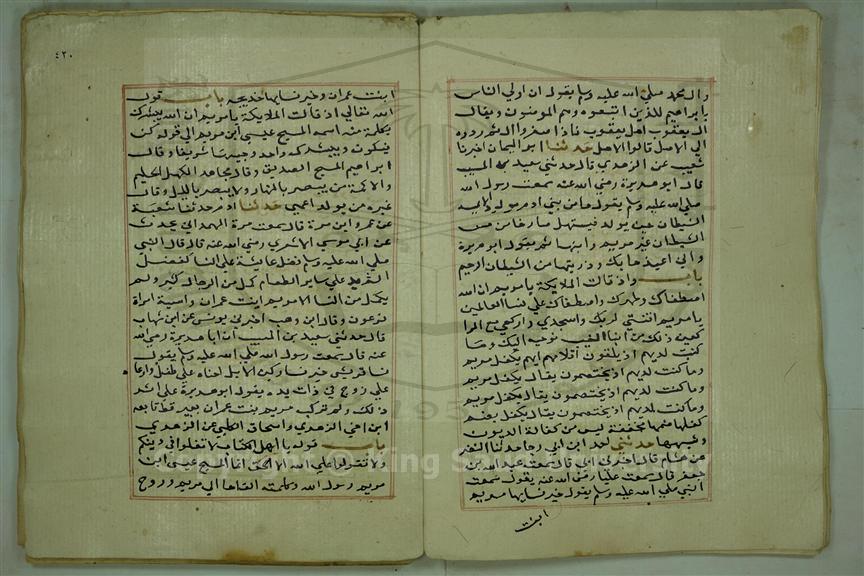 وال محمد صلي الله عليه وسلم يقول ان اولي الناس
بابراهيم للذين اتبعوه وهم المومنون ويقال
ال يعقوب اهل يعقوب فاذا صغروا ال ثم ردوه
الي الاصل قالوا اهيل حدثنا ابو اليمان اخبرنا
شعيب عن الزهري قال حدثني سعيد بن المسيب
قال ابو هريرة رضي الله عنه سمعت رسول الله
صلي الله عليه وسلم يقول ما من بني ادم مولود الا يمسه
الشيطان حين يولد فيستهل صارخا من مس
الشيطان غير مريم وابنها ثم يقول ابو هريرة
واني اعيذها بك وذريتها من الشيطان الرجيم
باب واذ قالت الملايكة يا مريم ان الله
اصطفاك وطهرك واصطفاك علي نسا العالمين
يا مريم اقنتي لربك واسجدي واركعي مع الرا
كعين ذلك من انبا الغيب نوحيه اليك وما
كنت لديهم اذ يلقون اقلامهم ايهم يكفل مريم
وما كنت لديهم اذ يختصمون يقال يكفل مريم
وما كنت لديهم اذ يختصمون يقال يكفل مريم
وما كنت لديهم اذ يختصمون يقال يكفل يضم
كفلها ضمها مخففة ليس من كفالة الديون
وشبهها حدثني احمد ابن ابي رجا حدثنا النضر
عن هشام قال اخبرني ابي قال سمعت عبد الله بن
جعفر قال سمعت عليا رضي الله عنه يقول سمعت
النبي صلي الله عليه وسلم يقول خير نسايها مريم
ابنت
٤٢٠
ابنت عمران وخير نسايها خديجه باب قول
الله تعالي اذ قالت الملايكة يا مريم ان الله يبشرك
بكلمة منه اسمه المسيح عيسي ابن مريم الي قوله كن
فيكون ويبشرك واحد وجيها شريفا وقال
ابراهيم المسيح الصديق وقال مجاهد الكهل الحليم
والاكمه من يبصر بالنهار ولا يبصر بالليل وقال
غيره من يولد اعمي حدثنا ادم حدثنا شعبة
عن عمرو ابن مرة قال سمعت مرة الهمداني يحدث
عن ابي موسي الاشعري رضي الله عنه قال قال النبي
صلي الله عليه وسلم فضل عايشة علي النسا كفضل
الثريد علي ساير الطعام كمل من الرجال كثير ولم
يكمل من النسا الا مريم ابنت عمران واسية امراة
فرعون وقال ابن وهب اخبرني يونس عن ابن شهاب
قال حدثني سعيد بن المسيب ان ابا هريرة رضي الله
عنه قال سمعت رسول الله صلي الله عليه وسلم يقول
نسا قريش خير نسا ركبن الابل احناه علي طفل وارعا
علي زوج في ذات يده يقول ابو هريرة علي اثر
ذلك ولم تركب مريم بنت عمران بعير قط تابعه
ابن اخي الزهري واسحاق الكلبي عن الزهري
باب قوله يا اهل الكتاب لا تغلوا في دينكم
ولا تقولوا علي الله الا الحق انما المسيح عيسي ابن
مريم رسول الله وكلمته القاها الي مريم وروح